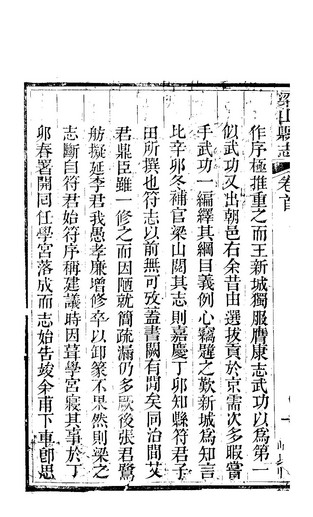 梁山縣志 卷首
作序極推重之而王新城獨服膺康志武功以為第一
似武功又出朝邑右余昔由選拔貢於京需次多暇嘗
手武功一編繹其綱目義例心竊韙之歎新城為知言
比辛卯冬補官梁山閱其志則嘉慶丁卯知縣符君子
田所撰也符志以前無可攷蓋書闕有間矣同治間艾
君鼎臣雖一修之而因陋就簡疏漏仍多厥後張君鷺
舫擬延李君我愚孝廉增修卒以卸篆不果然則梁之
志斷自符君始符序稱建議時因葺學宮寢其事於丁
卯春署開同任學宮落成而志始告竣余甫下車卽思